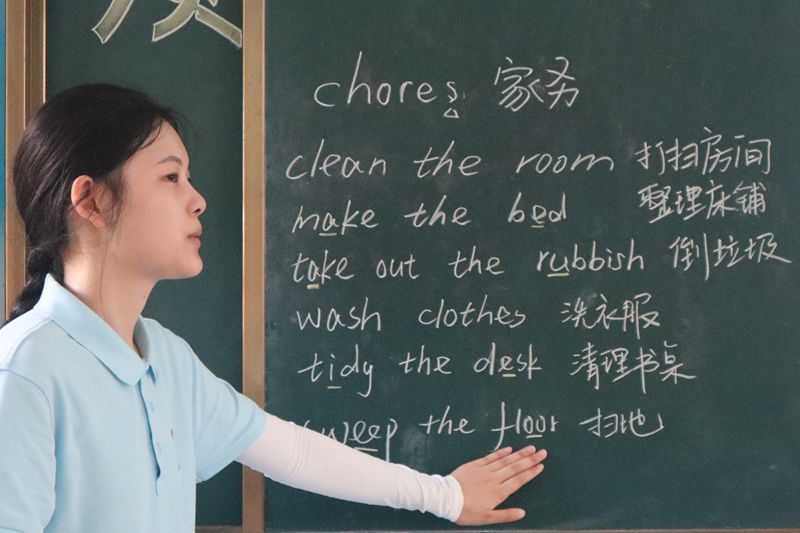 chores 家务
clean the room 打扫房间
make the bed 整理床铺
take out the rubbish 倒垃圾
wash clothes 洗衣服
tidy the desk 清理书桌
sweep the floor 扫地